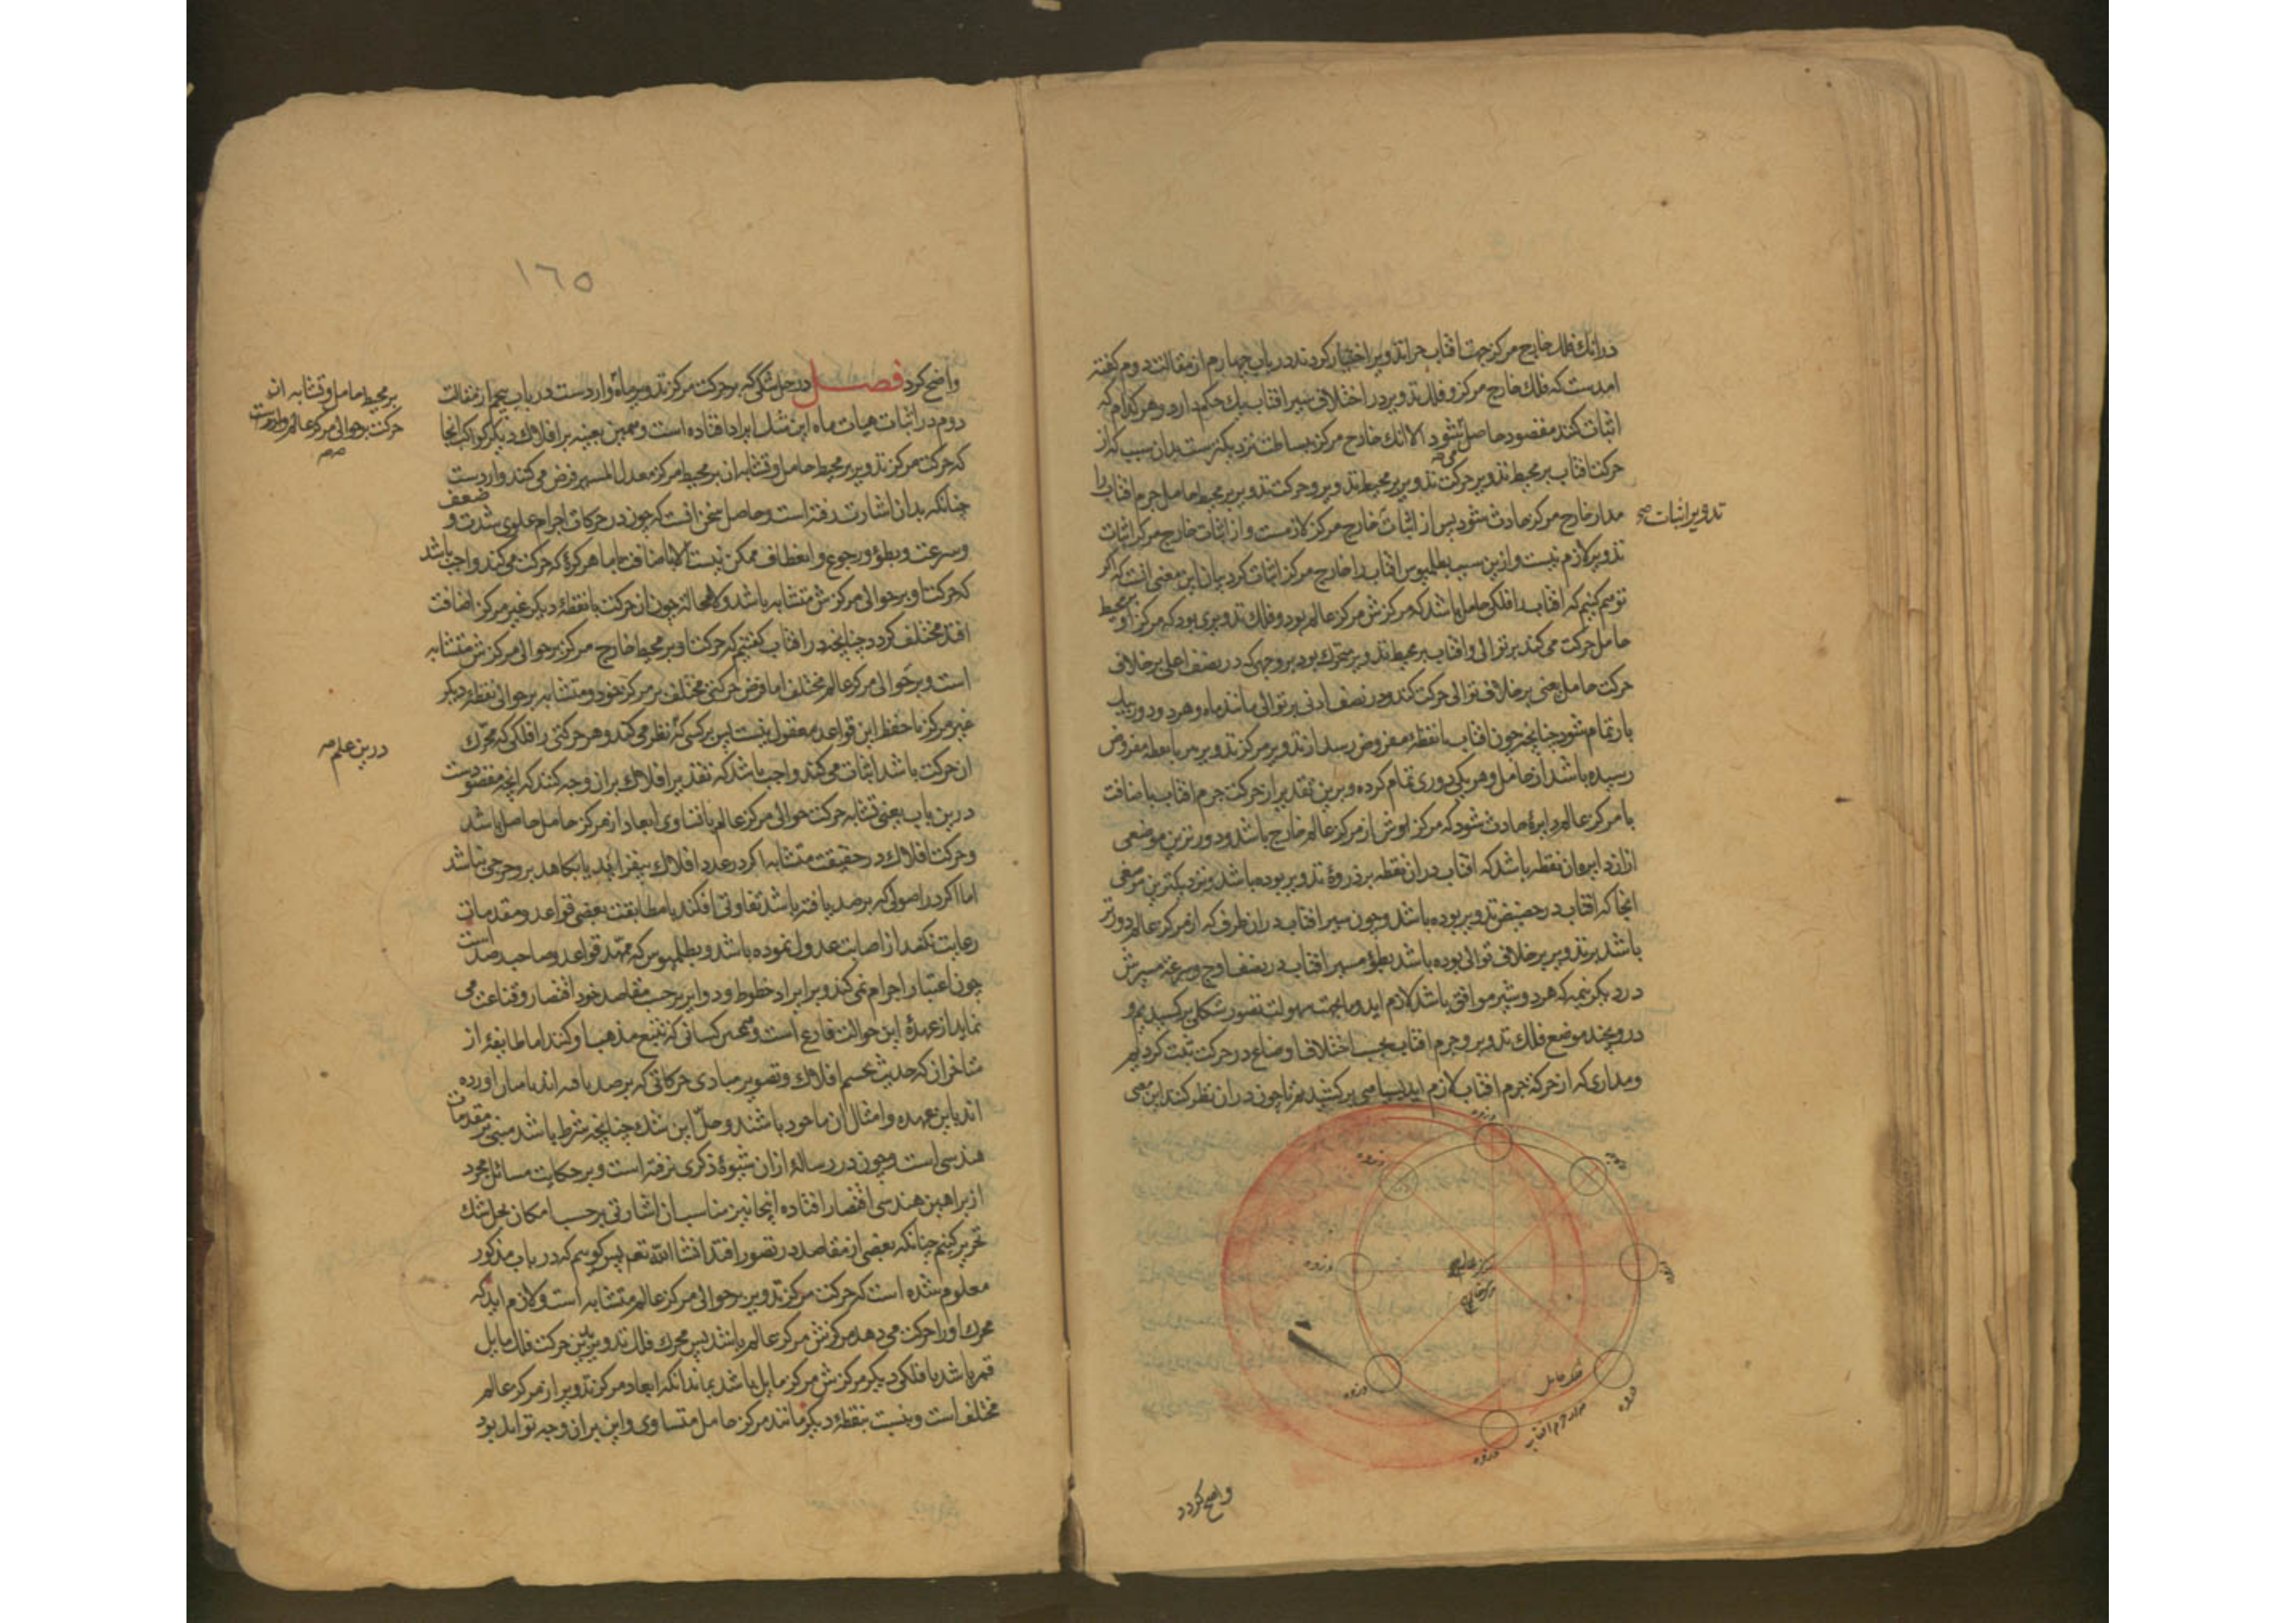 در آنک فلک خارج مرکز جهت افتاب چرا تدویر اختیار کردند در باب چهارم از مقالت دوم کفته
امدست که فلک خارج مرکز و فلک تدویر در اختلاف سیر افتاب یک حکم دارد و هر کدام که
اثبات کنند مقصود حاصل می شود الا انک خارج مرکز ببساطت نزدیکترست بدان سبب که از
حرکت افتاب بر محیط تدویر حرکت تدویر بر محیط تدویر و حرکت تدویر بر محیط حامل جرم افتاب را
مدار خارج مرکز حادث شود پس از اثبات خارج مرکز لازمست و از اثبات خارج مرکز اثبات
تدویر اثبات صح
تدویر لازم نیست و ازین سبب بطلمیوس افتاب را خارج مرکز اثبات کرد بیان این معنی انست که اکر
توهم کنیم که افتاب را فلکی حامل باشد که مرکزش مرکز عالم بود و فلک تدویری بود که مرکز او بر محیط
حامل حرکت می کند بر توالی و افتاب بر محیط تدویر متحرک بود بر وجهی که در نصف اعلی بر خلاف
حرکت حامل یعنی بر خلاف توالی حرکت کند و در نصف ادنی بر توالی مانند ماه و هر دو دور بیک
بار تمام شود چنانچه چون افتاب با نقطه مفروض رسد از تدویر مرکز تدویر هم با نقطه مفروض
رسیده باشد از حامل و هر یکی دوری تمام کرده و برین تقدیر از حرکت جرم افتاب باضافت
با مرکز عالم دایرهٔ حادث شود که مرکز اوش از مرکز عالم خارج باشد و دورترین موضعی
ازان دایره ان نقطه باشد که افتاب دران نقطه بر ذروهٔ تدویر بوده باشد و نزدیکترین موضعی
انجا که افتاب در حضیض تدویر بوده باشد و چون سیر افتاب دران طرف که از مرکز عالم دورتر
باشد بر تدویر بر خلاف توالی بوده باشد بطؤ مسیر افتاب در نصف اوج و سرعة مسیرش
در دیکر نیمه که هر دو سیر موافق باشد لازم اید و ما بجهت سهولت تصور شکلی برکشیدیم و
درو چند موضع فلک تدویر و جرم افتاب بحسب اختلاف اوضاع در حرکت ثبت کردیم
و مداری که از حرکة جرم افتاب لازم اید بسیاهی برکشیدیم تا چون دران نظر کنند این معنی
ذروه
ذروه
ذروه
ذروه
ذروه
ذروه
ذروه
ذروه
مرکز عالم
مرکز خارج
فلک حامل
مدار جرم افتاب
واضح کردد
١٦٥
واضح کردد فصل در حل شکی که بر حرکت مرکز تدویر ماه وارد است در باب پنجم از مقالت
دوم در اثبات هیات ماه این شک ایراد افتاده است و همین بعینه بر افلاک دیکر کواکب انجا
بر محیط حامل و تشابه ان
حرکت بر حوالی مرکز عالم واردست
که حرکت مرکز تدویر بر محیط حامل و تشابه ان بر محیط مرکز معدل المسیر فرض می کنند واردست
چنانکه بدان اشارت رفته است و حاصل سخن انست که چون در حرکات اجرام علوی شدت و ضعف
و سرعت و بطؤ و رجوع و انعطاف ممکن نیست الا باضافت با ما هر کرهٔ که حرکت می کند واجب باشد
که حرکت او بر حوالی مرکزش متشابه باشد و لامحالة چون ان حرکت با نقطهٔ دیکر غیر مرکز اضافت
افتد مختلف کردد چنانچه در افتاب کفتیم که حرکت او بر محیط خارج مرکز بر حوالی مرکزش متشابه
است و بر حوالی مرکز عالم مختلف اما فرض حرکتی مختلف بر مرکز خود و متشابه بر حوالی نقطهٔ دیکر
غیر مرکز با حفظ این قواعد معقول نیست پس بر کسی که نظر می کند و هر حرکتی را فلکی که محرک
درین علم صح
ان حرکت باشد اثبات می کند واجب باشد که تقدیر افلاک بر ان وجه کند که انچه مقصودست
درین باب یعنی تشابه حرکت حوالی مرکز عالم با تساوی ابعاد از مرکز حامل حاصل باشد
و حرکت افلاک در حقیقت متشابه اکر در عدد افلاک بیفزاید یا بکاهد بر و حرجی نباشد
اما اکر در اصولی که برصد یافته باشد تفاوتی افکند یا مطابقت بعضی قواعد و مقدمات
رعایت نکند از اصابت عدول نموده باشد و بطلمیوس که ممهّد قواعد و صاحب رصد است
چون اعتبار اجرام نمی کند و بر ایراد خطوط و دوایر بر حسب مقاصد خود اقتصار و قناعت می
نماید از عهدهٔ این حوالت فارغ است و همچنین کسانی که تتبع مذهب او کنند اما طایفهٔ از
متاخران که حدیث تجسم افلاک و تصویر مبادی حرکاتی که برصد یافته اند بامیان اورده
اند باین عهده و امثال ان ماخوذ باشند و حلّ این شک چنانچه شرط باشد مبنی بر مقدمات
هندسی است و چون در رسالهٔ ازان شیوهٔ ذکری نرفته است و بر حکایت مسائل مجرد
از براهین هندسی اقتصار افتاده اینجا نیز مناسب ان اشاوتی بر حسب امکان بحل شک
تحریر کنیم چنانکه بعضی از مقاصد در تصور افتد انشا الله تعم پس کوییم که در باب مذکور
معلوم شده است که حرکت مرکز تدویر بر حوالی مرکز عالم متشابه است و لازم اید که
محرک او را حرکت می دهد مرکزش مرکز عالم باشد پس محرک فلک تدویر برین حرکت فلک مایل
قمر باشد یا فلکی دیکر مرکزش مرکز مایل باشد بماند انکه ابعاد مرکز تدویر از مرکز عالم
مختلف است و بنسبت بنقطهٔ دیکر مانند مرکز حامل متساوی و این بران وجه تواند بود